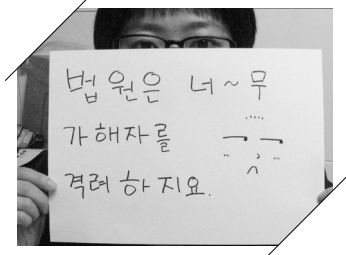 법원은 너~무
가해자를
격려하지요.